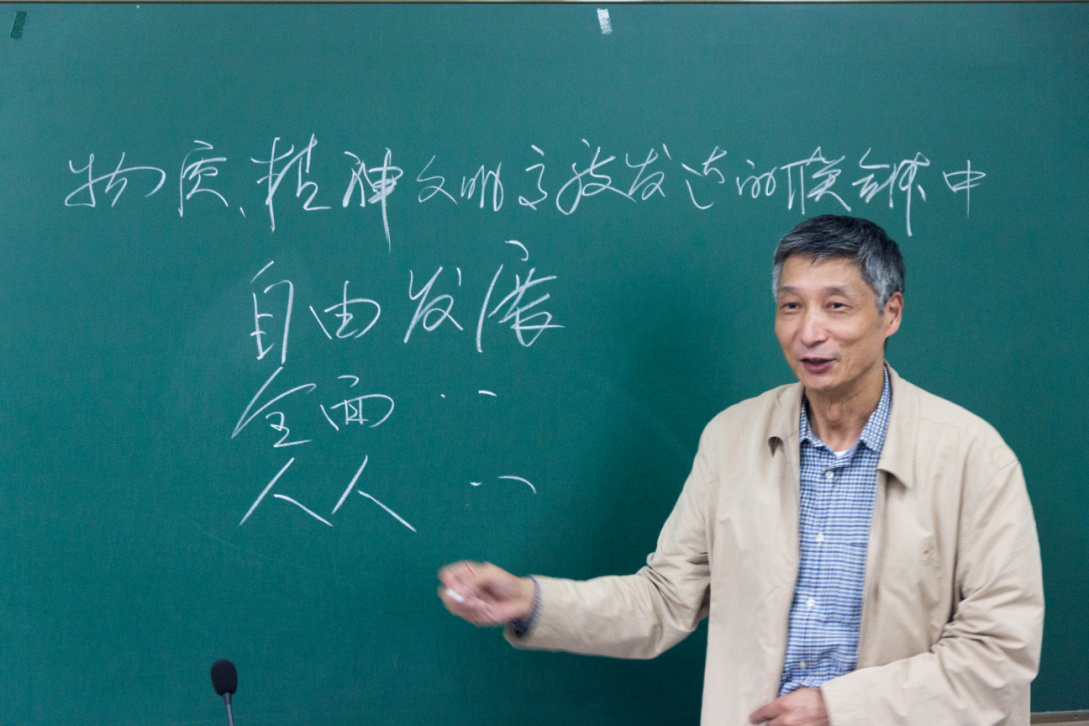 物质、精神文明高度发达的联合体中
自由发展
全面 〃
人人 〃